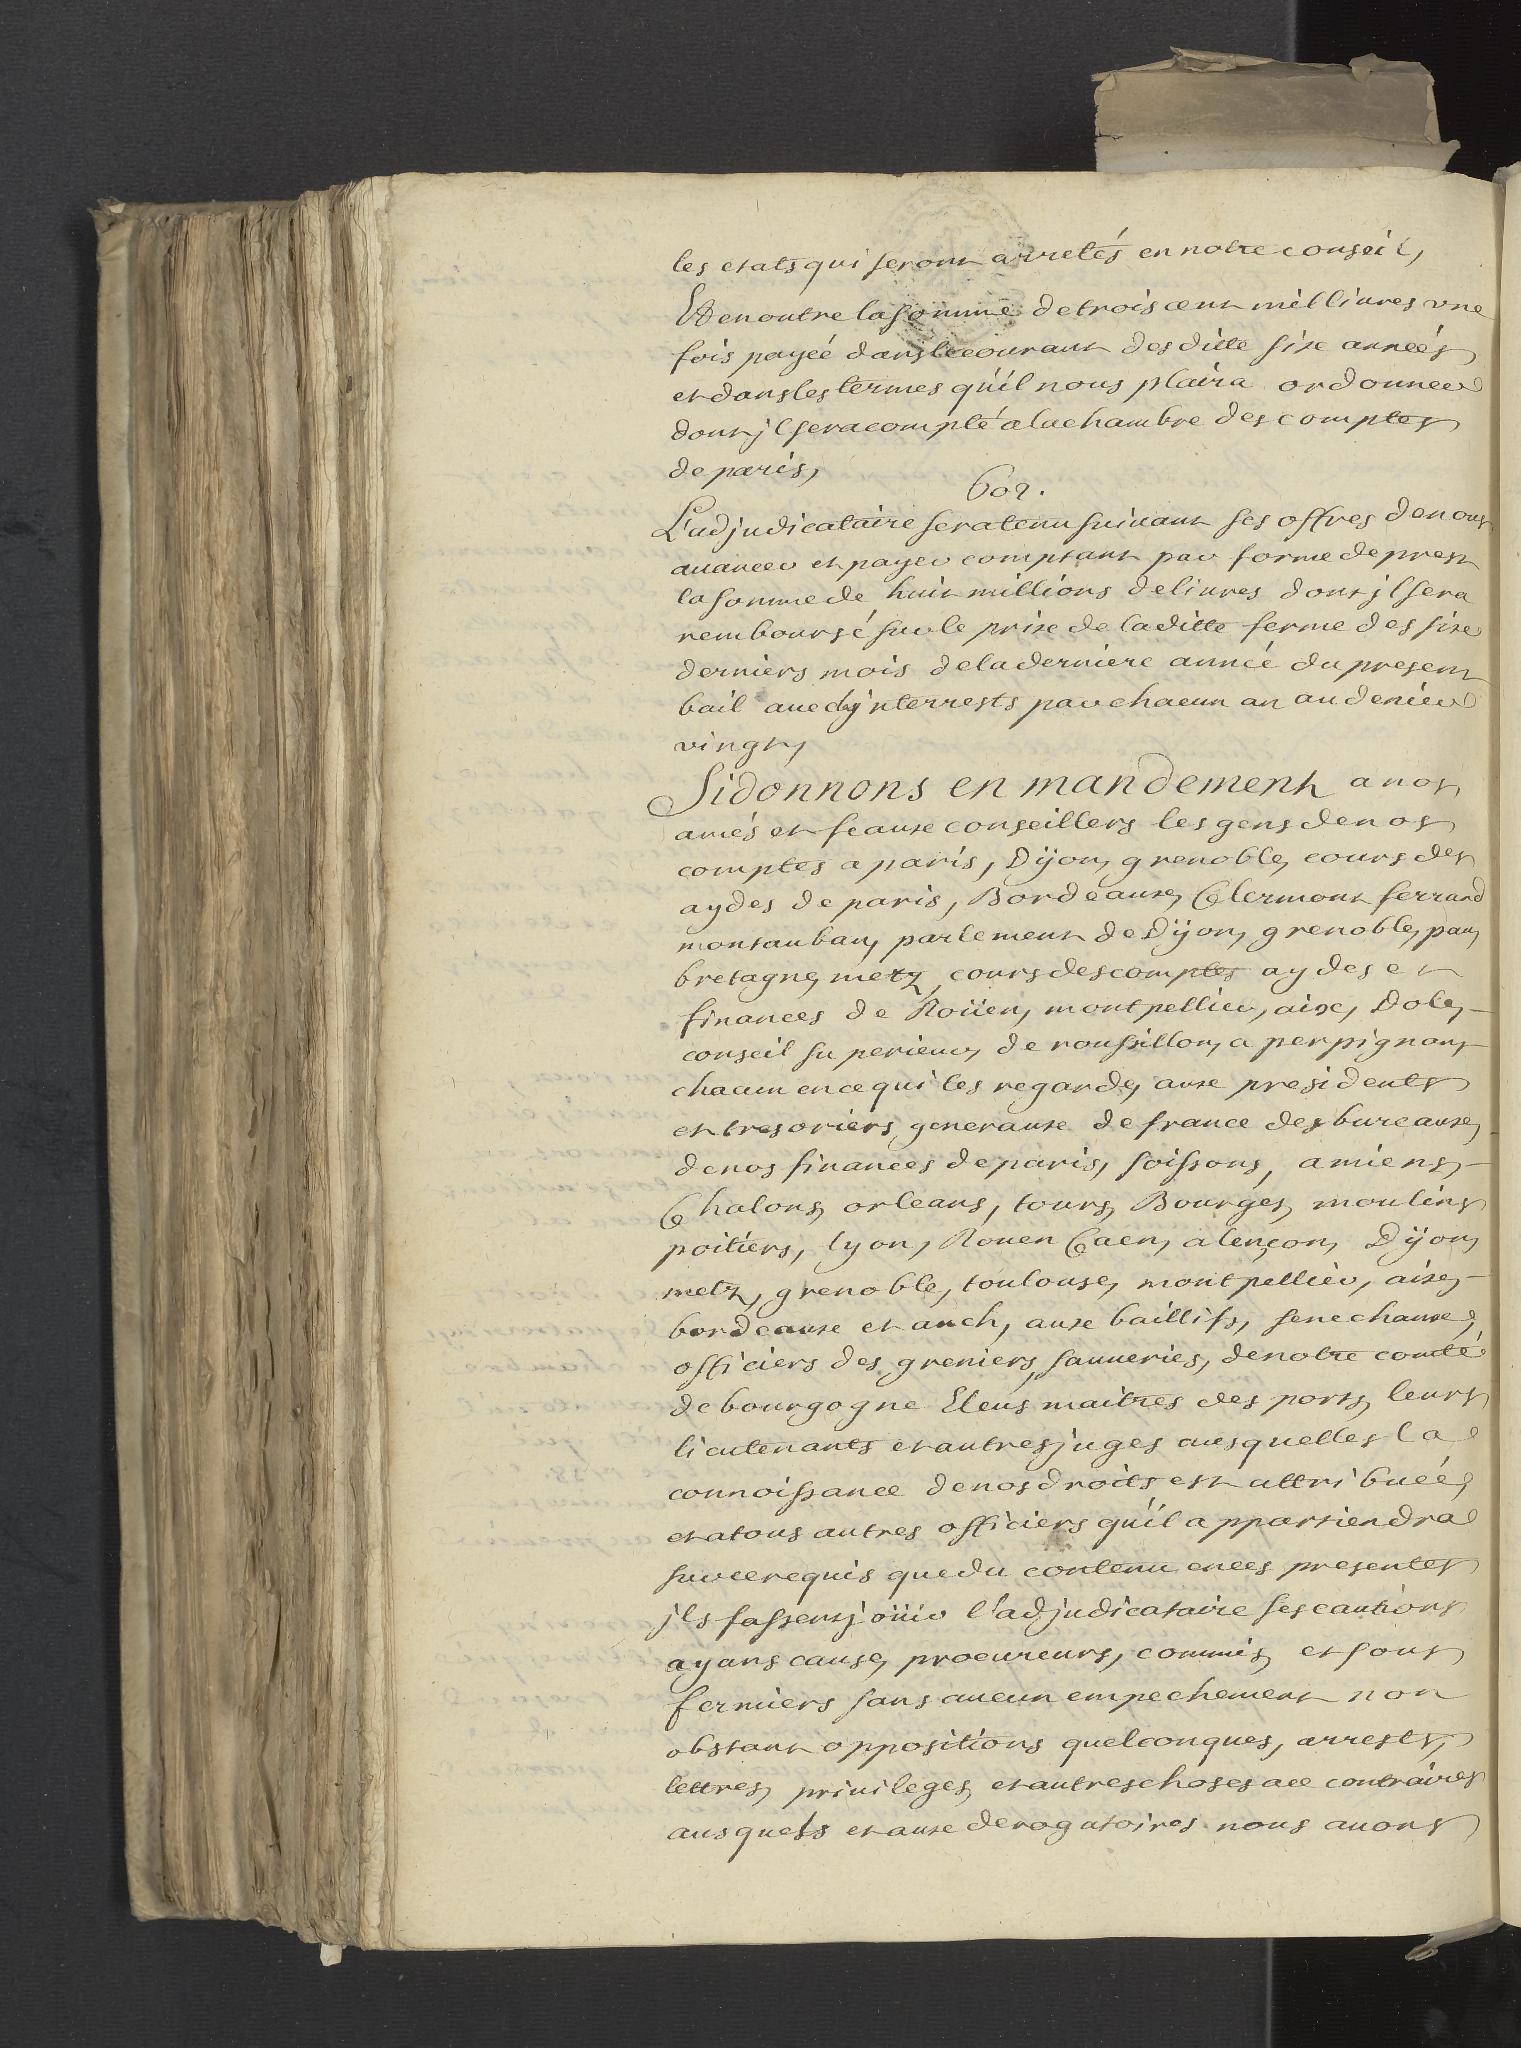 les etats qui seront arretés en notre conseil,
Et en outre la somme de trois cent mil liures vne
fois payéé dans le courant des ditte six annéés
et dans les termes qu'il nous plaira ordonner
dont jl sera compté a la chambre des comptes
de paris,
602.
L'adjudicataire sera tenu suiuant ses offres de nous
auancer et payer comptant par forme de prest
la somme de huit millions de liures dont jl sera
remboursé sur le prix de laditte ferme des six
derniers mois de la derniere annéé du present
bail auec les jnterrests par chacun an au denier
vingt,
Si donnons en mandement a nos
amés et feaux conseillers les gens de nos
comptes a paris, Dijon, grenoble, cours des
aydes de paris, Bordeaux, Clermont ferrand
montauban, parlement de Dijon, grenoble, pau,
bretagne, metz, cours des comptes aydes et
finances de Roüen, montpellier, aix, Dole,
conseil superieur, de roussillon, a perpignan,
chacun en ce qui les regarde, aux presidents
et tresoriers, generaux de france des bureaux,
de nos finances de paris, soissons, amiens,
Chalons, orleans, tours, Bourges, moulins
poitiers, lyon, Rouen Caen, alençon, Dijon,
metz, grenoble, toulouse, montpellier, aix,
bordeaux et auch, aux baillifs, senechaux,
officiers des greniers, sauneries, de notre comté
de bourgogne Eleus maitres des ports, leurs
lieutenants et autres juges ausquelles la
connoissance de nos droits est attribuéé,
et a tous autres officiers qu'il appartiendra
sur ce requis que du contenu en ces presentes
jls fassent joüir l'adjudicataire ses cautions
ayans cause, procureurs, commis, et sous
fermiers sans aucun empechement non
obstant oppositions quelconques, arrests,
lettres, priuileges, et autres choses a ce contraires
ausquels et aux derogatoires nous auons